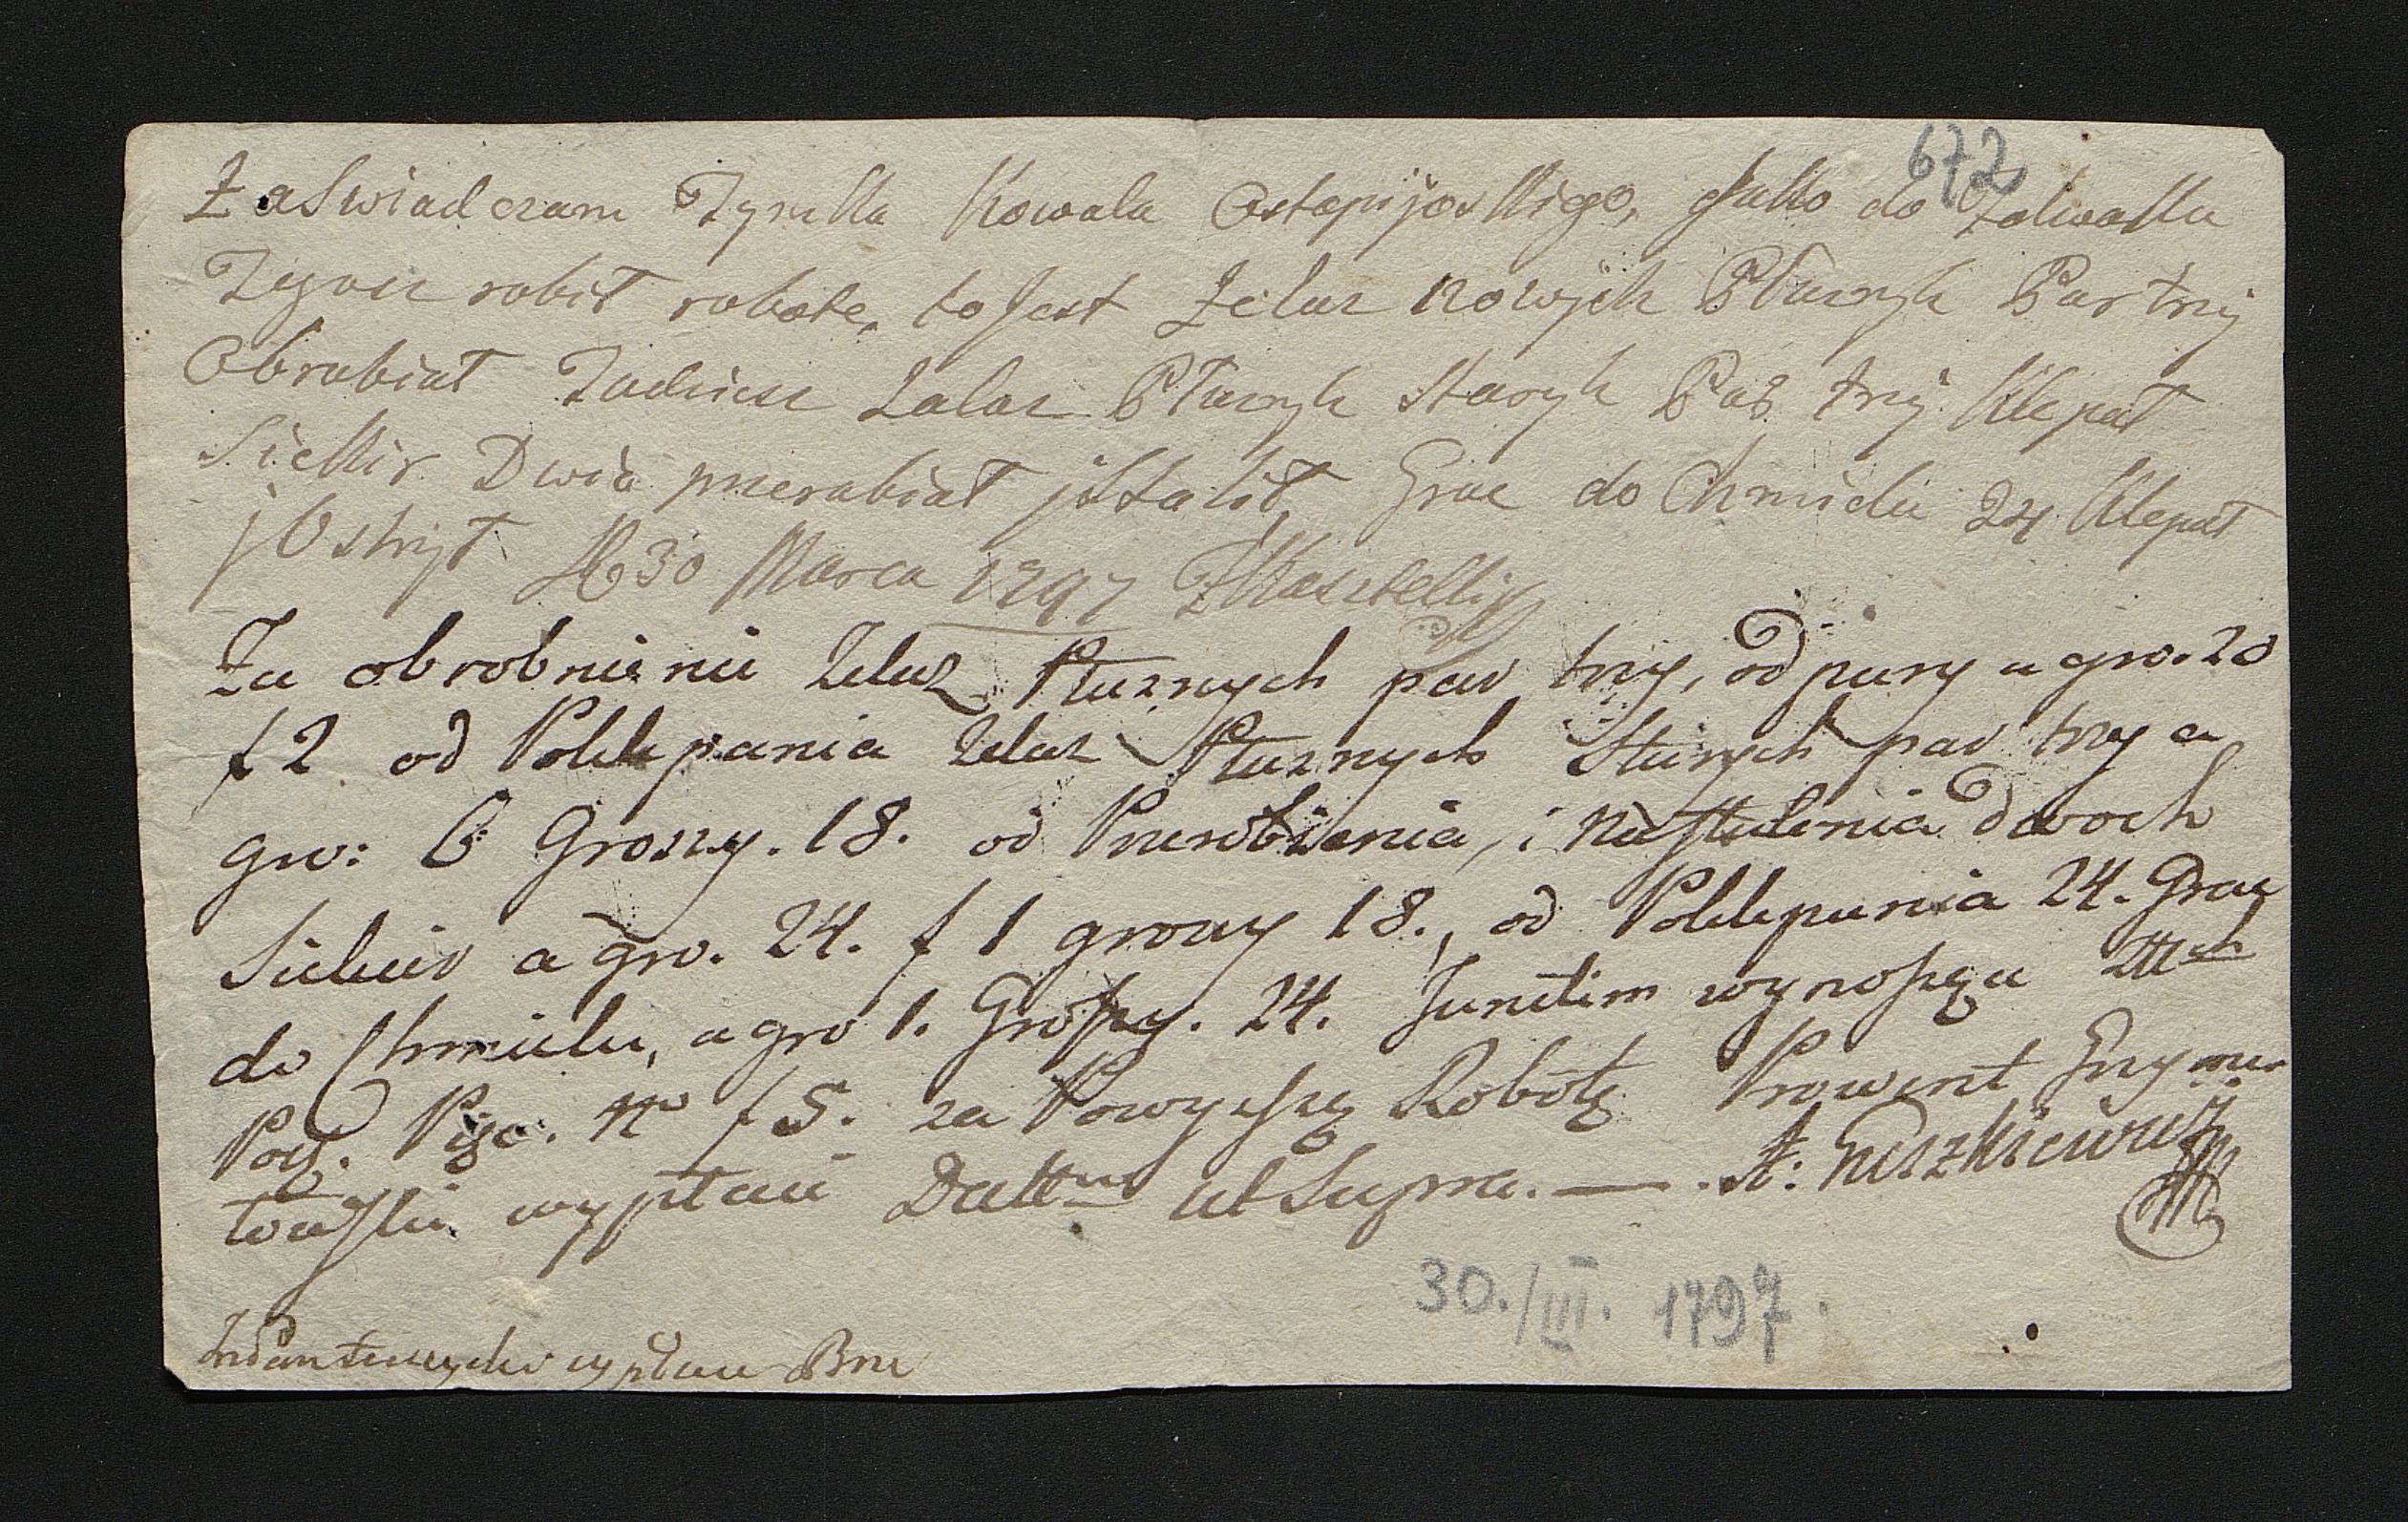 672
Zaswiadczam Kowala Ostapijoskiego, Jako do Folwaku
robił robote, to Jest Zelaz nowych Płuznych Par trzy
Obrabiał Zelaz Płuznych Starych Par trzy Klepał
Siekir Dwie przerabiał j Stalił, Grac do Chmielu 24 Klepał
j Ostrzył D 30 Marca 1797
Za obrobnienie Zelaz Płuznych par trzy, od pary a gro. 20
f 2 od Poklepania Zelaz Płuznych Starych par trzy a
gro: 6 Groszy. 18. od Przerobienia, i Nastalenia dwoch
Siekier a gro. 24. f 1 groszy 18., od Poklepania 24. Grac
do Chmielu, a gro 1. Groszy. 24. Junctim wynoszącą
Pol. Pięc. No f 5. za Powyszszą Robotę Prowent
wypłaci Datt ut Supra. — . A:
30./III. 1797.